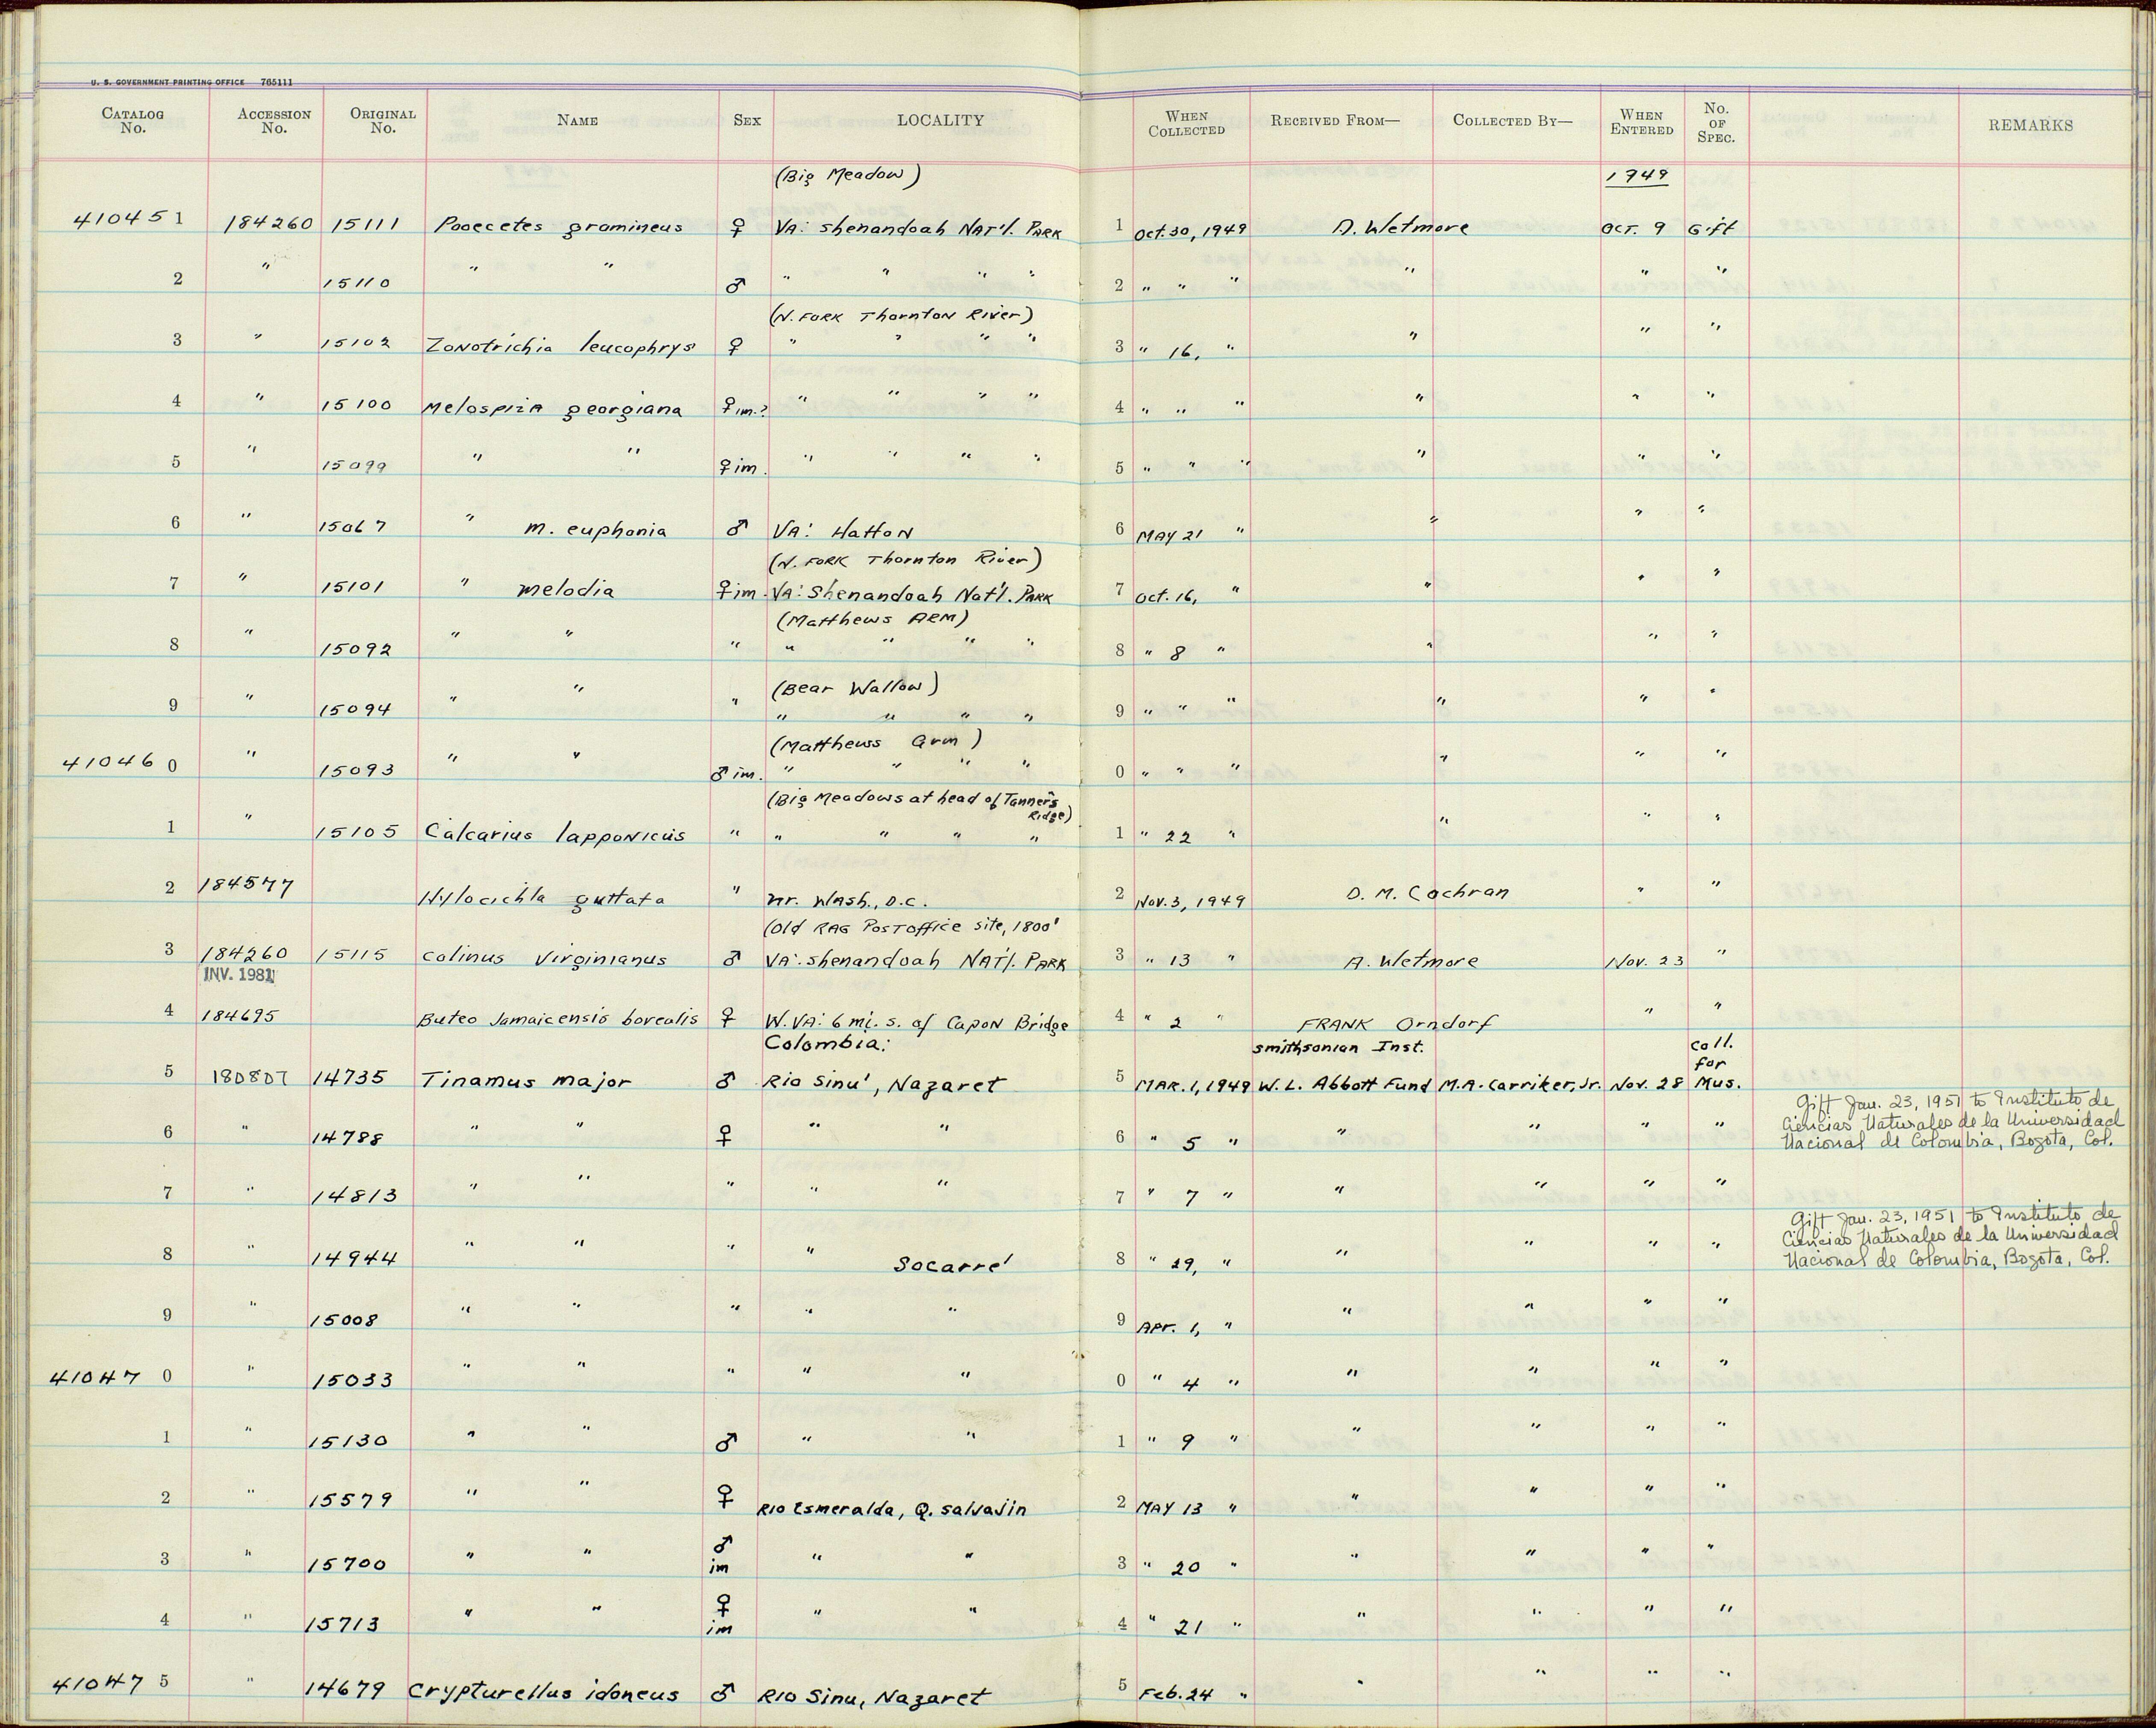 U. S. GOVERNMENT PRINTING OFFICE 765111
CATALOG No. ACCESSION No. ORIGINAL No. NAME SEX LOCALITY WHEN COLLECTED RECEIVED FROM— COLLECTED BY— WHEN ENTERED No. OF SPEC. REMARKS
(Big Meadow) 1949
410451 184260 15111 Pooecetes gramineus ♀ VA: Shenandoah NAT'l. PARK 1 Oct. 30, 1949 A. Wetmore Oct. 9 Gift
2 " 15110 " " ♂ " " " " 2 " " " " " "
(N. FORK Thornton River)
3 " 15102 Zonotrichia leucophrys ♀ " " " " 3 " 16, " " " "
4 " 15100 Melospiza georgiana ♀ im.? " " " " 4 " " " " " "
5 " 15099 " " ♀ im. " " " " 5 " " " " " "
6 " 15067 " m. euphonia ♂ VA: Hatton 6 MAY 21 " " " "
(N. FORK Thornton River)
7 " 15101 " melodia ♀ im. VA: Shenandoah Nat'l. PARK 7 Oct. 16, " " " "
(Matthews ARM)
8 " 15092 " " " " " " " 8 " 8 " " " "
(Bear Wallow)
9 " 15094 " " " " " " " 9 " " " " " "
(Matthews Arm)
410460 " 15093 " " ♂ im. " " " " 0 " " " " " "
(Big Meadows at head of Tanner's Ridge)
1 " 15105 Calcarius lapponicus " " " " " 1 " 22 " " " "
2 184577 Hylocichla guttata " nr. Wash., D.C. 2 Nov. 3, 1949 D. M. Cochran " "
(Old RAG Post office site, 1800'
3 184260 15115 Colinus Virginianus ♂ VA: Shenandoah NAT'l. PARK 3 " 13 " A. Wetmore Nov. 23 "
INV. 1981
4 184695 Buteo Jamaicensis borealis ♀ W. VA: 6 mi. s. of Capon Bridge 4 " 2 " FRANK Orndorf " "
Colombia: Smithsonian Inst. Coll. for
5 180807 14735 Tinamus major ♂ Rio Sinu', Nazaret 5 MAR. 1, 1949 W. L. Abbott Fund M. A. Carriker, Jr. Nov. 28 Mus.
Gift Jan. 23, 1951 to Instituto de
Ciencias Naturales de la Universidad
6 " 14788 " " ♀ " " 6 " 5 " " " " " Nacional de Colombia, Bogota, Col.
7 " 14813 " " " " " 7 " 7 " " " " "
Gift Jan. 23, 1951 to Instituto de
Ciencias Naturales de la Universidad
8 " 14944 " " " " Socarre' 8 " 29, " " " " " Nacional de Colombia, Bogota, Col.
9 " 15008 " " " " " 9 Apr. 1, " " " " "
410470 " 15033 " " " " " 0 " 4 " " " " "
1 " 15130 " " ♂ " " 1 " 9 " " " " "
2 " 15579 " " ♀ Rio Esmeralda, Q. Salvajin 2 MAY 13 " " " " "
3 " 15700 " " ♂ im " " 3 " 20 " " " " "
4 " 15713 " " ♀ im " " 4 " 21 " " " " "
410475 " 14679 Crypturellus idoneus ♂ Rio Sinu, Nazaret 5 Feb. 24 " " " " "